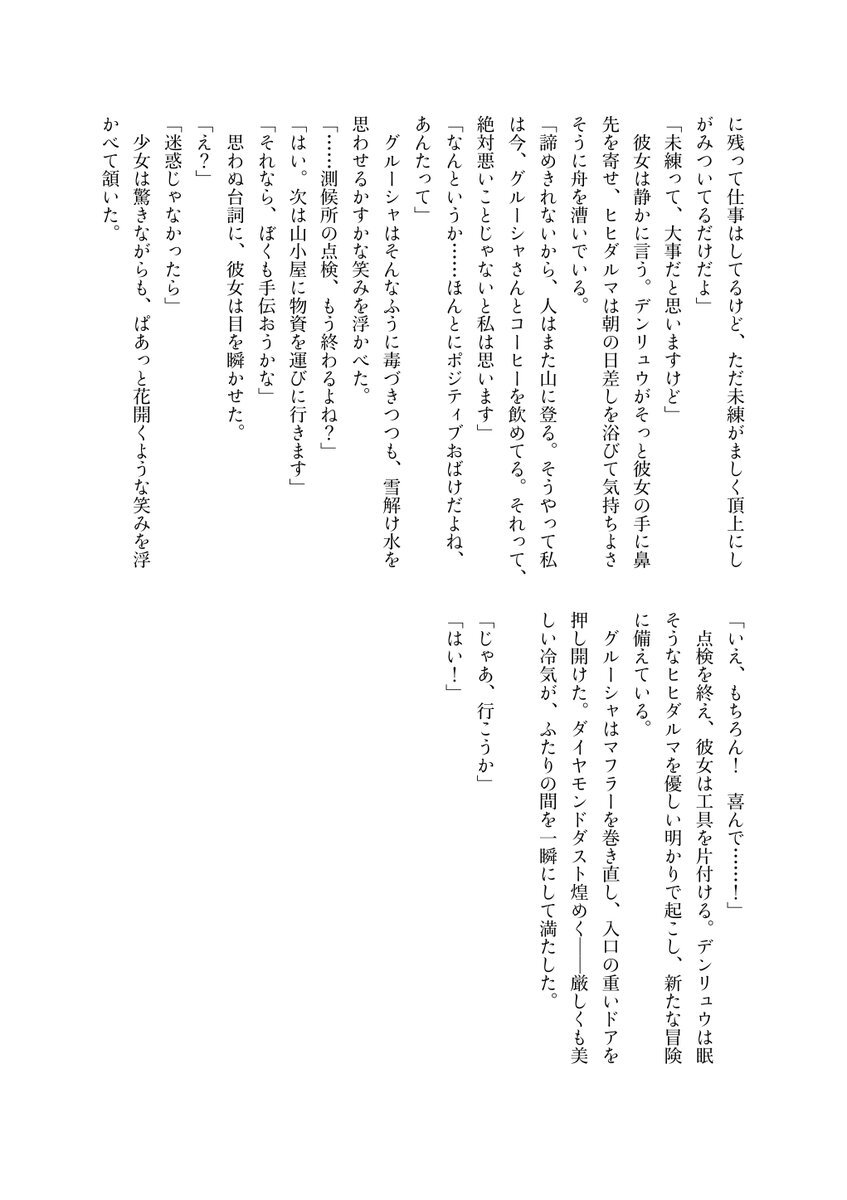 に残って仕事はしてるけど、ただ未練がましく頂上にし
がみついてるだけだよ」
「未練って、大事だと思いますけど」
　彼女は静かに言う。デンリュウがそっと彼女の手に鼻
先を寄せ、ヒヒダルマは朝の日差しを浴びて気持ちよさ
そうに舟を漕いでいる。
「諦めきれないから、人はまた山に登る。そうやって私
は今、グルーシャさんとコーヒーを飲めてる。それって、
絶対悪いことじゃないと私は思います」
「なんというか……ほんとにポジティブおばけだよね、
あんたって」
　グルーシャはそんなふうに毒づきつつも、雪解け水を
思わせるかすかな笑みを浮かべた。
「……測候所の点検、もう終わるよね？」
「はい。次は山小屋に物資を運びに行きます」
「それなら、ぼくも手伝おうかな」
　思わぬ台詞に、彼女は目を瞬かせた。
「え？」
「迷惑じゃなかったら」
　少女は驚きながらも、ぱあっと花開くような笑みを浮
かべて頷いた。
「いえ、もちろん！　喜んで……！」
　点検を終え、彼女は工具を片付ける。デンリュウは眠
そうなヒヒダルマを優しい明かりで起こし、新たな冒険
に備えている。
　グルーシャはマフラーを巻き直し、入口の重いドアを
押し開けた。ダイヤモンドダスト煌めく――厳しくも美
しい冷気が、ふたりの間を一瞬にして満たした。
「じゃあ、行こうか」
「はい！」